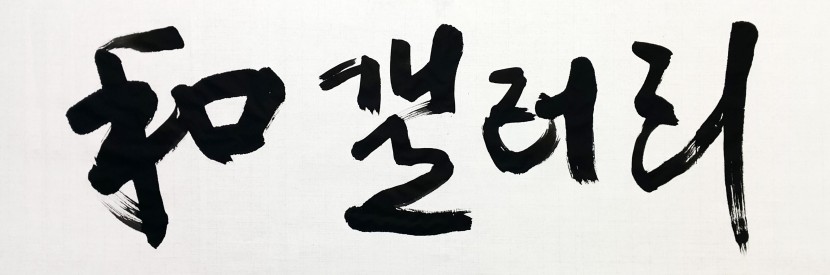 和갤러리